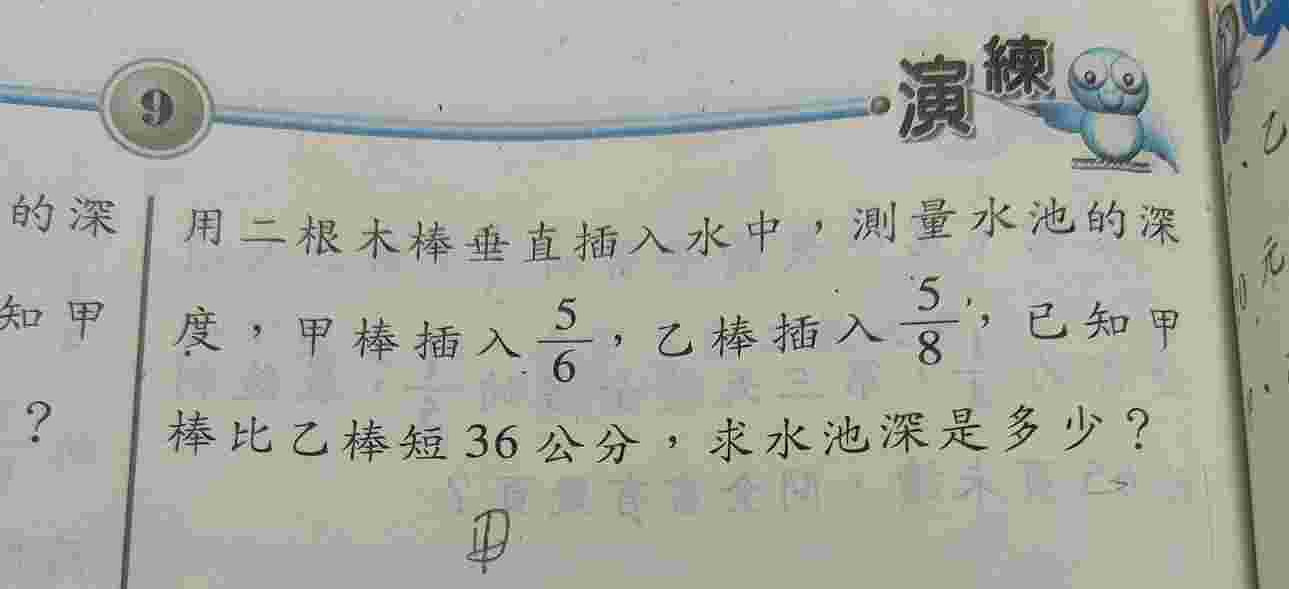 9
演練
的深
知甲
?
用二根木棒垂直插入水中,測量水池的深
度,甲棒插入 5/6,乙棒插入 5/8,已知甲
棒比乙棒短 36 公分,求水池深是多少?
甲
乙
元